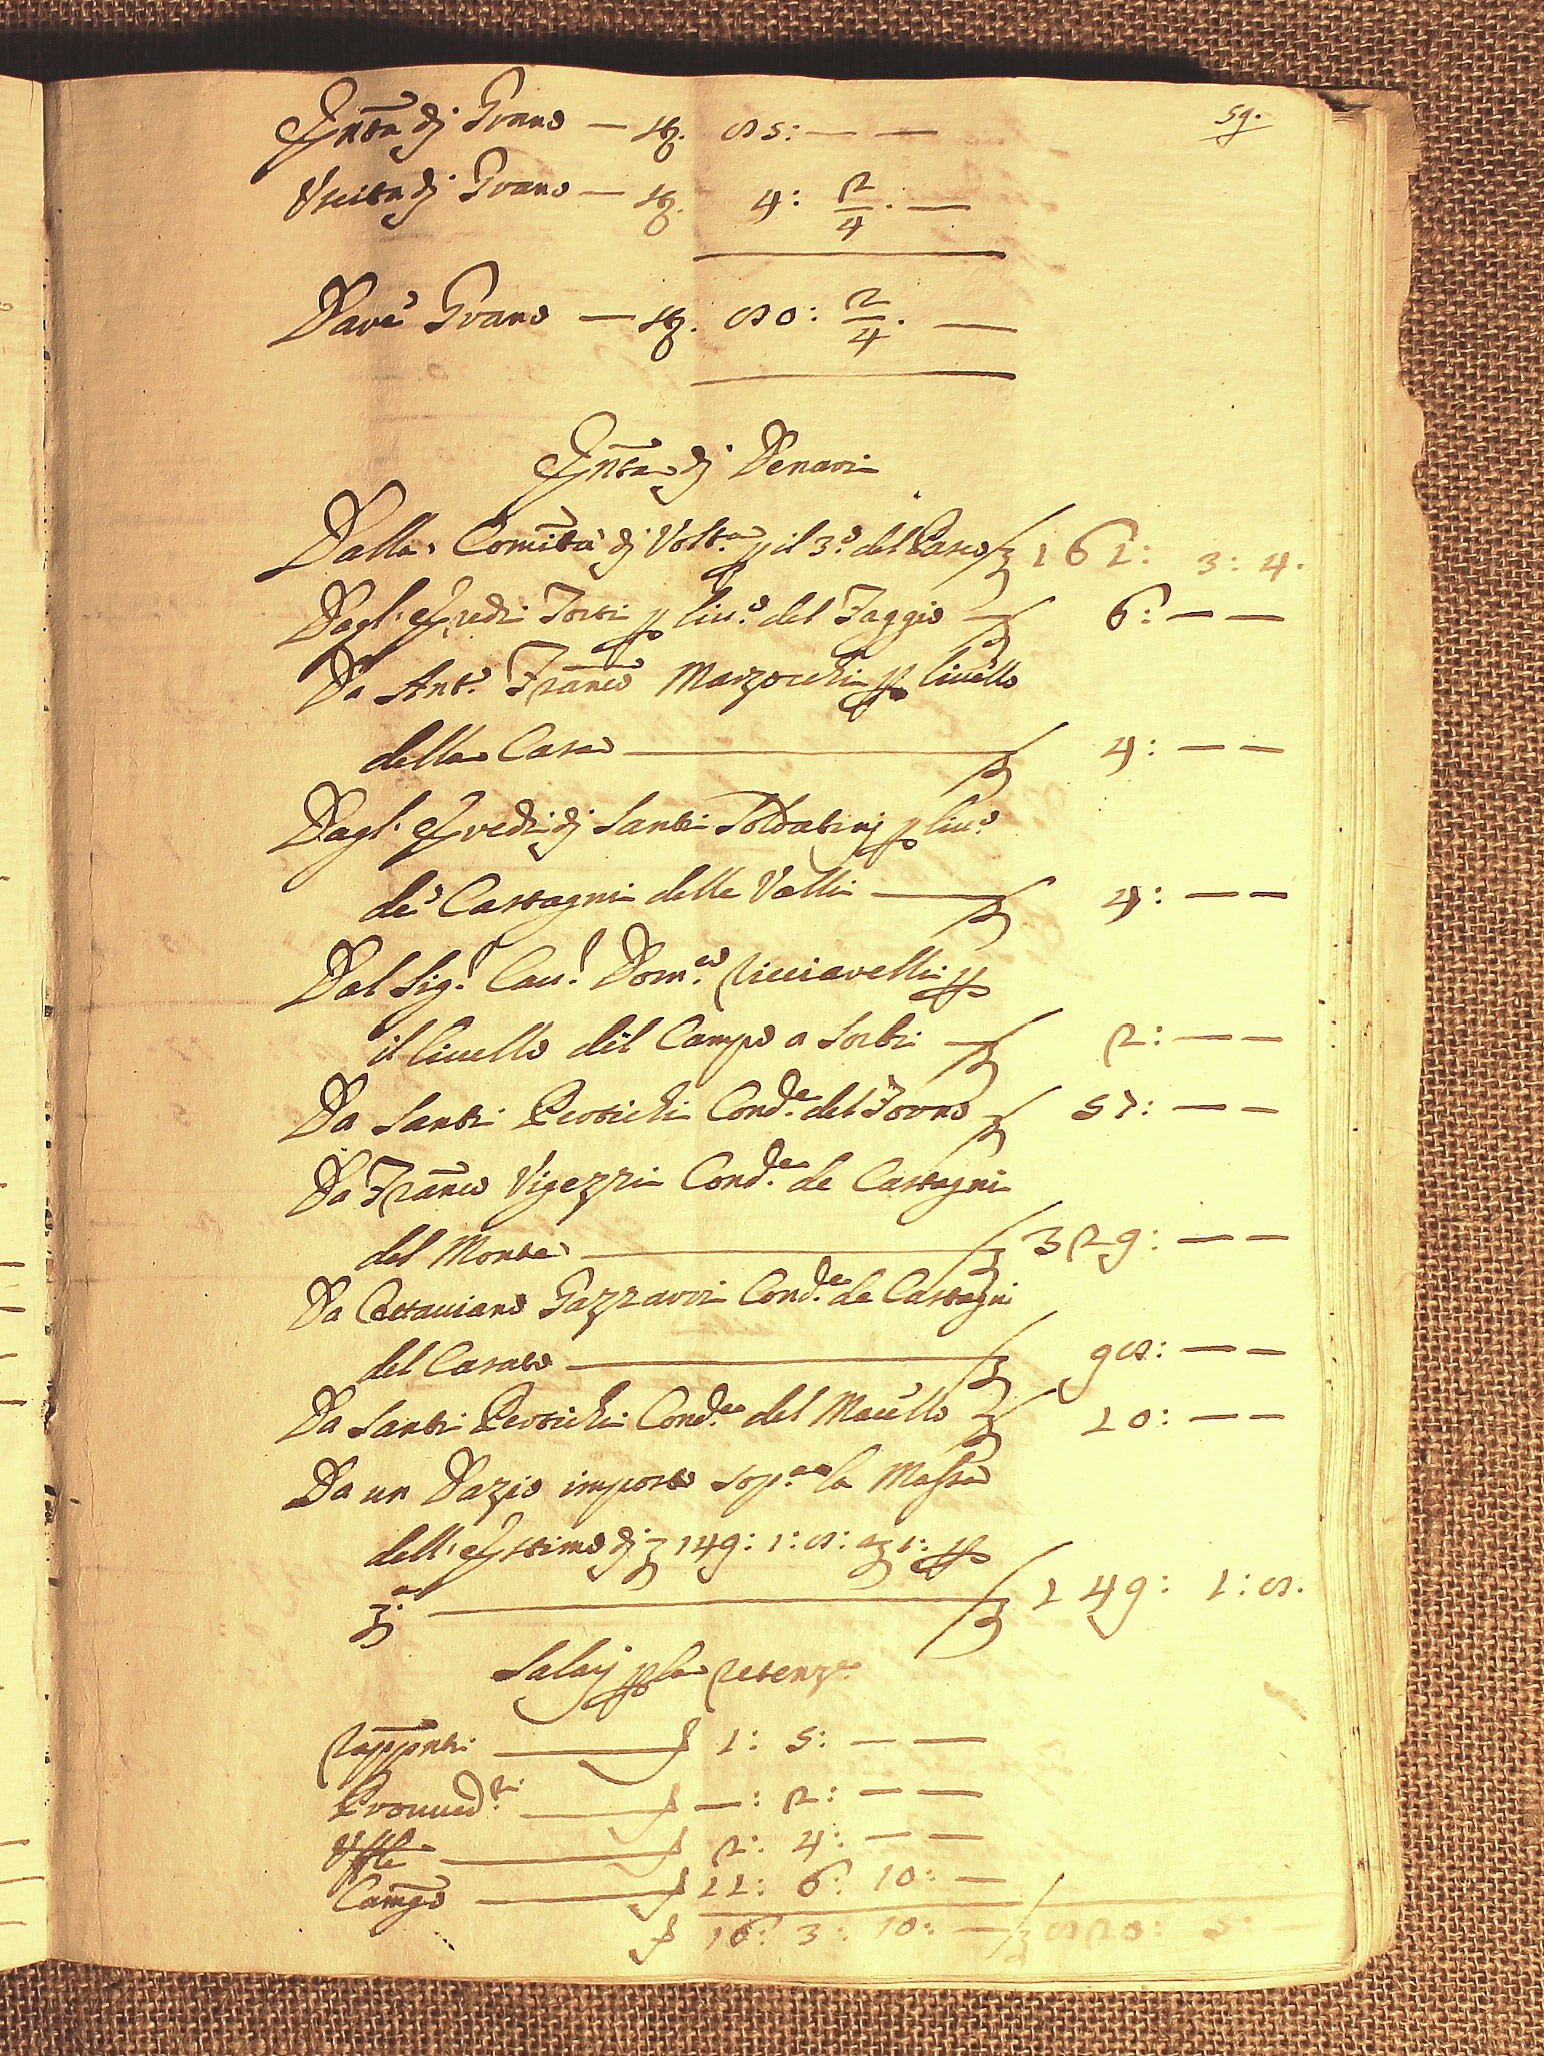 59.
Entrã di Grano — st. 85: — —
Uscita di Grano — st. 4: 2/4. —
Dare Grano — st. 80: 2/4. —
Entrã di Denari
Dalla Comĩtà di Volt.ª p il 3.º del Pasco £ 161: 3: 4.
Dagl' Eredi Torti p liv.º del Faggio — £ 6: — —
Da Ant.º Franc̃o Marzocchi p livello
della Casa — £ 4: — —
Dagl' Eredi di Santi Soldatinj p liv.º
de' Castagni delle Valli — £ 4: — —
Dal Sig.r Cav.r Dom.co Ricciarelli p
il livello del Campo a Sorbi — £ 2: — —
Da Santi Pertichi Cond.e del Forno £ 57: — —
Da Franc̃o Vigezzi Cond.e de Castagni
del Monte — £ 329: — —
Da Ottaviano Gazzarri Cond.e de Castagni
del Casato — £ 98: — —
Da Santi Pertichi Cond.e del Macello £ 10: — —
Da un Dazio imposto sop.ª la Massa
dell' Estimo di £ 149: 1: 8: a £ 1: p
£.ª — £ 149: 1: 8.
Salarj p la retenz.e
Rapp̃nti — ƒ 1: 5: — —
Provved.re — ƒ —: 2: — —
Uffle — ƒ 2: 4: — —
Cam̃go — ƒ 11: 6: 10: —
ƒ 16: 3: 10: — £ 820: 5: —